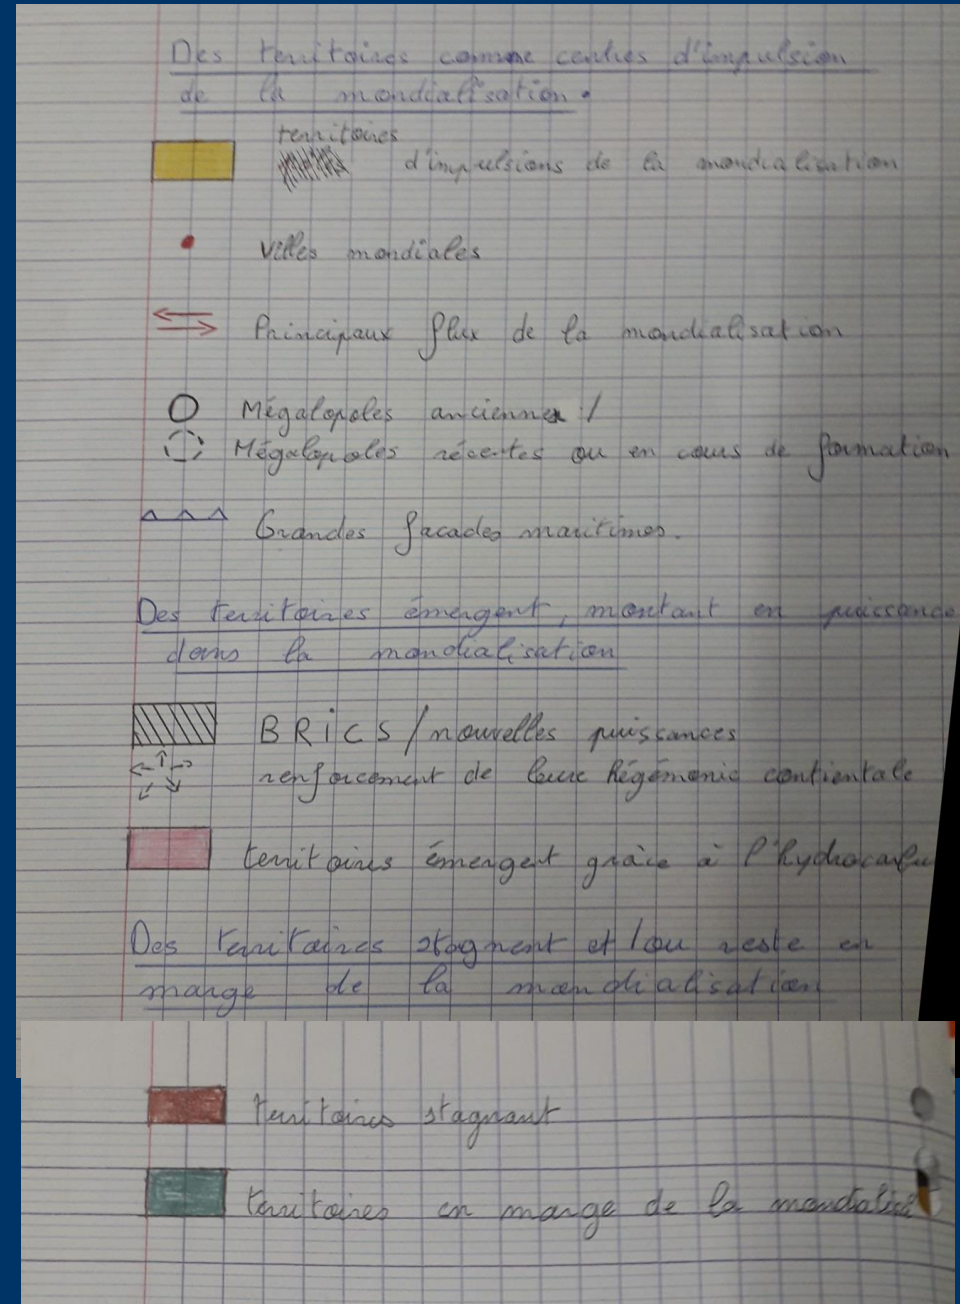 Des territoires comme centres d'impulsion
de la mondialisation.
territoires
d'impulsions de la mondialisation
Villes mondiales
Principaux flux de la mondialisation
Mégalopoles anciennes /
Mégalopoles récentes ou en cours de formation
Grandes facades maritimes.
Des territoires émergent, montant en puissance
dans la mondialisation
BRiCS / nouvelles puissances
renforcement de leur hégémonie contientale
territoires émergent grâce à l'hydrocarbu
Des territoires stagnent et/ou reste en
marge de la mondialisation
territoires stagnant
territoires en marge de la mondialisé